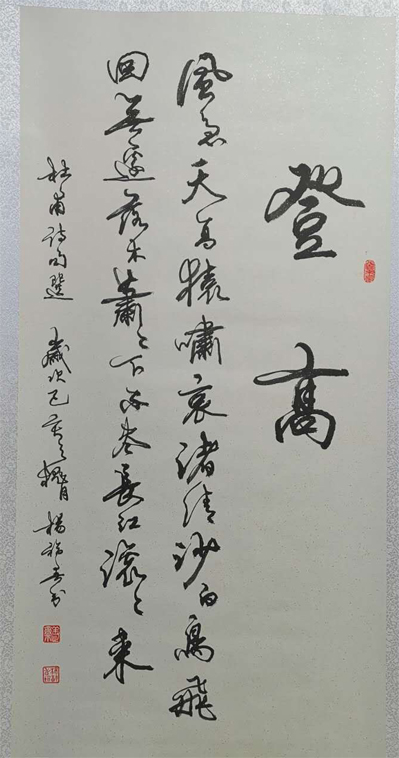 登高
風急天高猿嘯哀渚清沙白鳥飛
回無邊落木蕭々下不盡長江滾々來
杜甫詩句選 歲次己亥 楊书